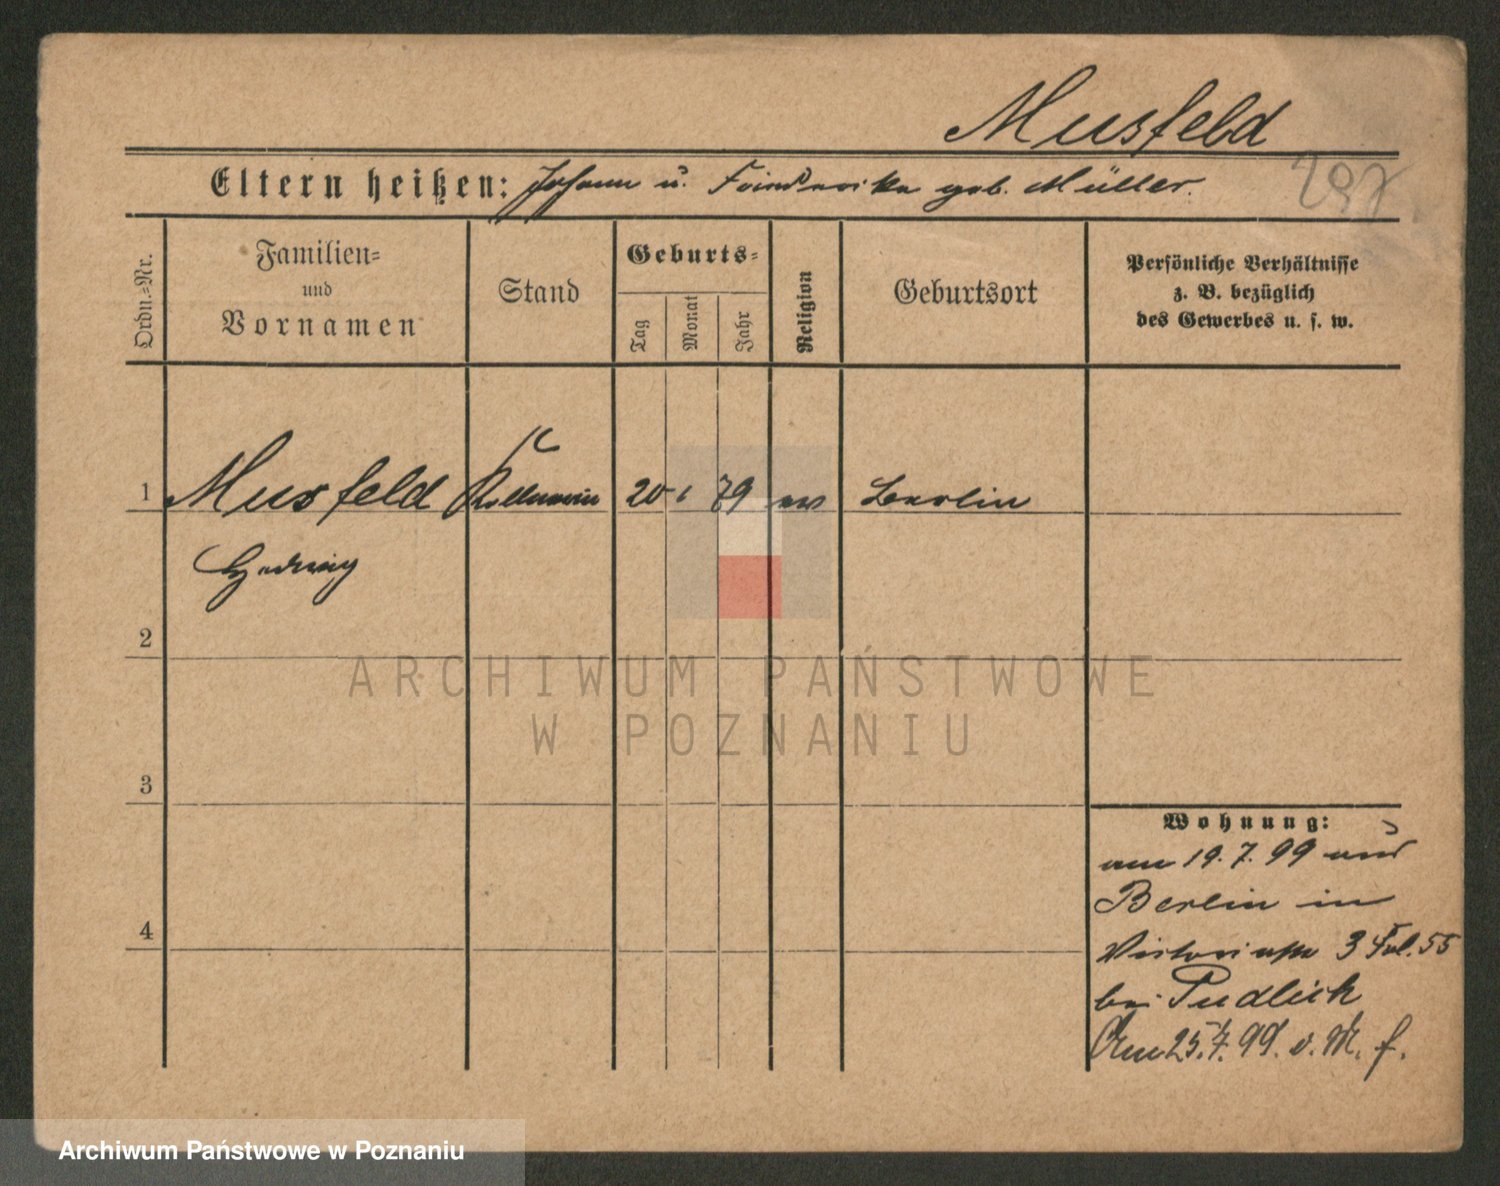 Musfeld
Eltern heißen: Johann u. Friederike geb. Müller.
297
Ordn.-Nr.
Familien-
und
Vornamen
Stand
Geburts-
Tag
Monat
Jahr
Religion
Geburtsort
Persönliche Verhältnisse
z. B. bezüglich
des Gewerbes u. s. w.
1 Musfeld Kellnerin 20 1 79 ev Berlin
Hedwig
2
ARCHIWUM PAŃSTWOWE
W POZNANIU
3
Wohnung:
am 19. 7. 99 aus
Berlin in
Victoriastr 3 Fol. 55
bei Pudlick
Am 25. 7. 99. v. M. f.
4
Archiwum Państwowe w Poznaniu